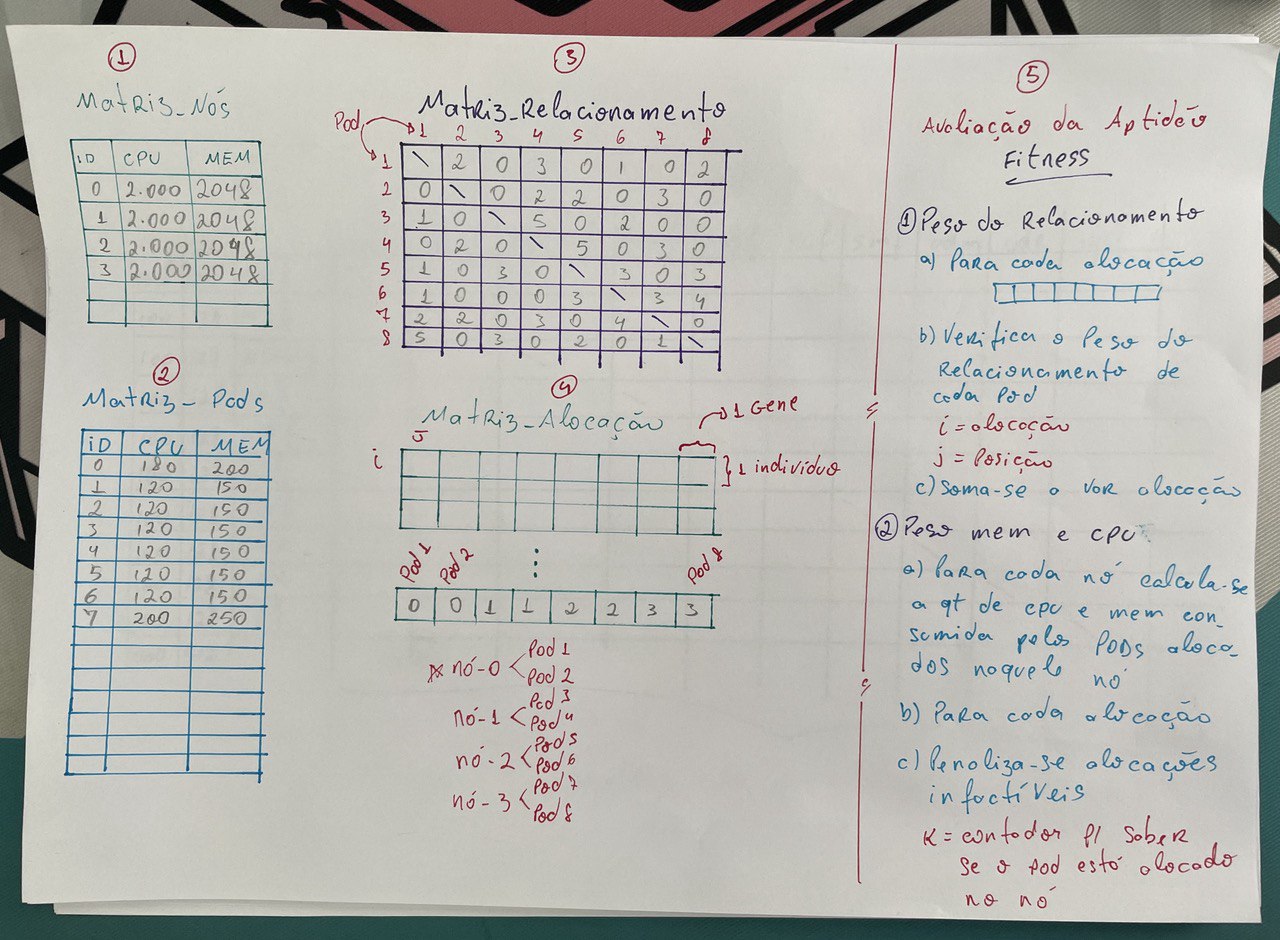 ①
Matriz_Nós
ID CPU MEM
0 2.000 2048
1 2.000 2048
2 2.000 2048
3 2.000 2048
②
Matriz_Pods
ID CPU MEM
0 180 200
1 120 150
2 120 150
3 120 150
4 120 150
5 120 150
6 120 150
7 200 250
③
Matriz_Relacionamento
Pod
1 2 3 4 5 6 7 8
1 \ 2 0 3 0 1 0 2
2 0 \ 0 2 2 0 3 0
3 1 0 \ 5 0 2 0 0
4 0 2 0 \ 5 0 3 0
5 1 0 3 0 \ 3 0 3
6 1 0 0 0 3 \ 3 4
7 2 2 0 3 0 4 \ 0
8 5 0 3 0 2 0 1 \
④
Matriz_Alocação
j
i
1 Gene
1 indivíduo
Pod 1 Pod 2 ... Pod 8
0 0 1 1 2 2 3 3
nó-0 < Pod 1
Pod 2
nó-1 < Pod 3
Pod 4
nó-2 < Pod 5
Pod 6
nó-3 < Pod 7
Pod 8
⑤
Avaliação da Aptidão
Fitness
① Peso do Relacionamento
a) Para cada alocação
b) Verifica o Peso do
Relacionamento de
cada Pod
i = alocação
j = Posição
c) Soma-se o alocação
② Peso mem e cpu
a) Para cada nó calcula-se
a qt de cpu e mem con-
sumida pelos PODs aloca-
dos naquele nó
b) Para cada alocação
c) Penaliza-se alocações
infactíveis
K = contador p/ saber
se o pod está alocado
no nó